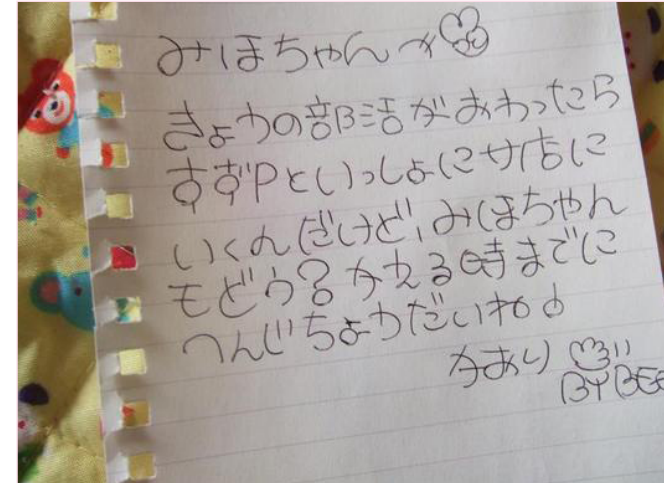 みほちゃんへ
きょうの部活がおわったら
すずPといっしょにサ店に
いくんだけど、みほちゃん
もどう？かえる時までに
へんじちょうだいねd
かおり
BYBEE